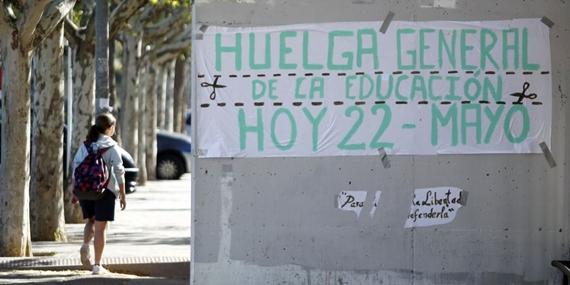 HUELGA GENERAL
DE LA EDUCACIÓN
HOY 22-MAYO
"Para la Libertad
defenderla"